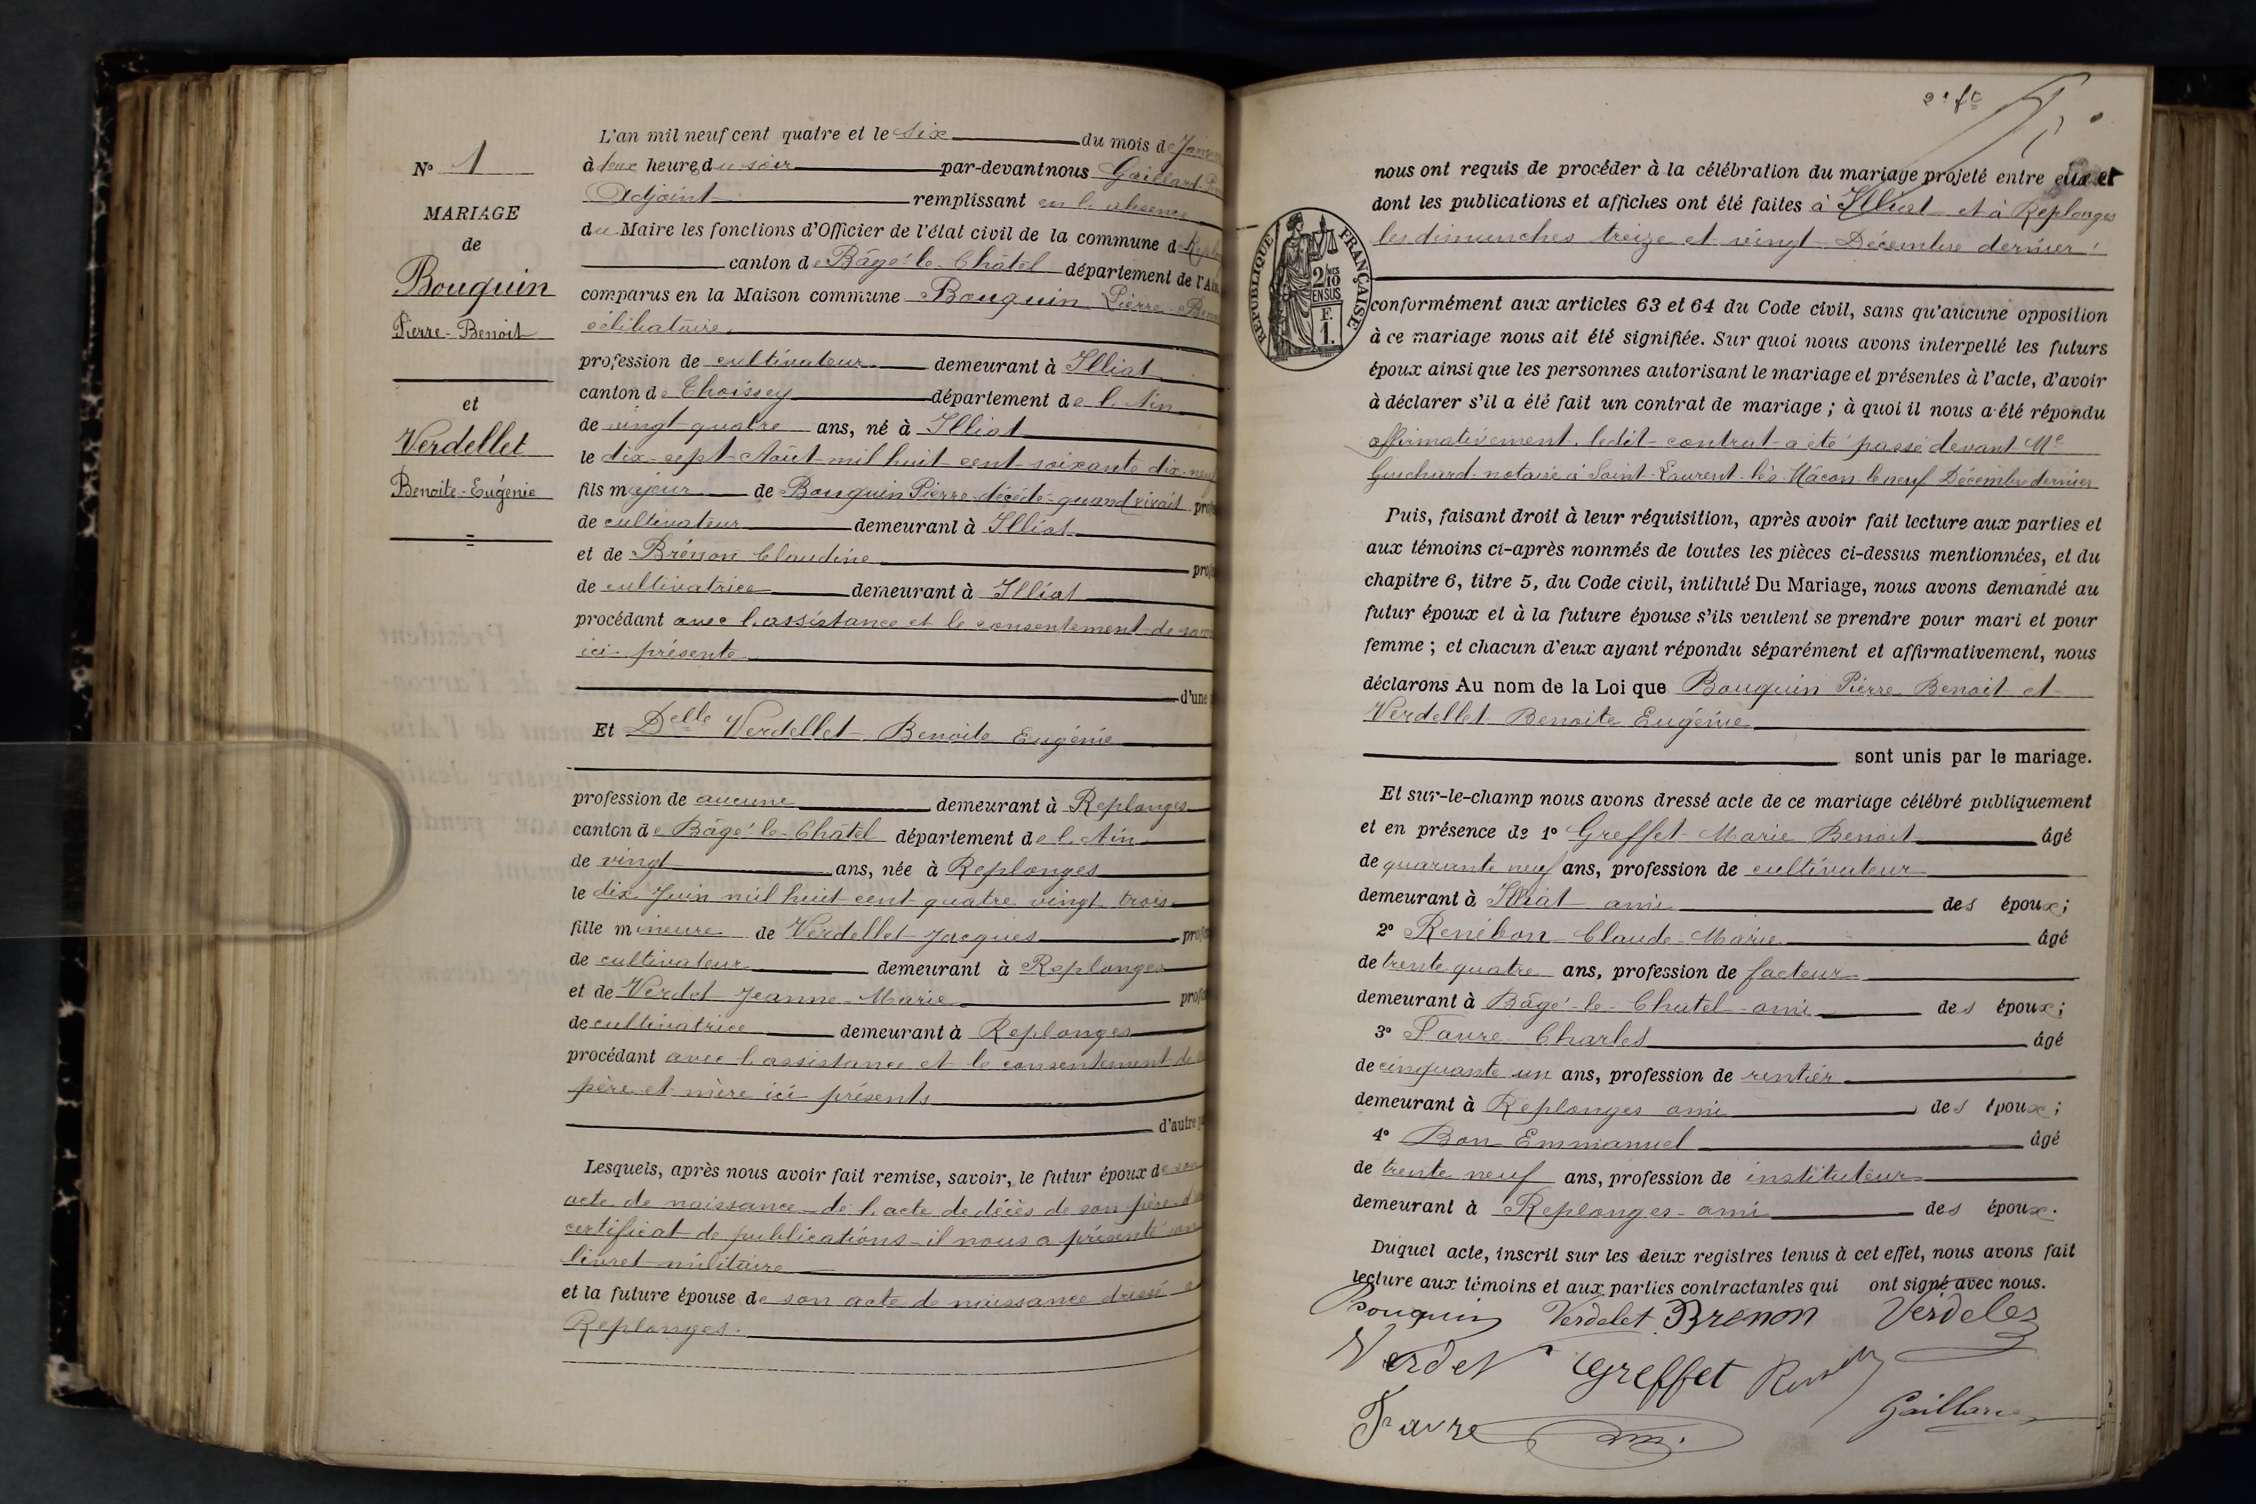 N° 1
MARIAGE
de
Bouquin
Pierre-Benoit
et
Verdellet
Benoite-Eugénie
L'an mil neuf cent quatre et le six du mois de Janvier
à deux heures du soir par-devant nous Gaillard
Adjoint remplissant en l'absence
du Maire les fonctions d'Officier de l'état civil de la commune de
canton de Bâgé-le-Châtel département de l'Ain
comparus en la Maison commune Bouquin Pierre-Benoit
célibataire
profession de cultivateur demeurant à Illiat
canton de Thoissey département de l'Ain
de vingt quatre ans, né à Illiat
le dix-sept Août mil huit cent soixante dix-neuf
fils majeur de Bouquin Pierre décédé quand vivait
de cultivateur demeurant à Illiat
et de Brénon Claudine
de cultivatrice demeurant à Illiat
procédant avec l'assistance et le consentement de sa
ici présente
d'une
Et Delle Verdellet Benoite Eugénie
profession de aucune demeurant à Replonges
canton de Bâgé-le-Châtel département de l'Ain
de vingt ans, née à Replonges
le dix Juin mil huit cent quatre vingt trois
fille mineure de Verdellet Jacques
de cultivateur demeurant à Replonges
et de Verdet Jeanne-Marie
de cultivatrice demeurant à Replonges
procédant avec l'assistance et le consentement de
père et mère ici présents
d'autre
Lesquels, après nous avoir fait remise, savoir, le futur époux de son
acte de naissance de l'acte de décès de son père
certificat de publications il nous a présenté son
livret militaire
et la future épouse de son acte de naissance dressé à
Replonges.
2e ft
nous ont requis de procéder à la célébration du mariage projeté entre eux et
dont les publications et affiches ont été faites à Illiat et à Replonges
les dimanches treize et vingt Décembre dernier
RÉPUBLIQUE FRANÇAISE
2/10
EN SUS
F.
1.
conformément aux articles 63 et 64 du Code civil, sans qu'aucune opposition
à ce mariage nous ait été signifiée. Sur quoi nous avons interpellé les futurs
époux ainsi que les personnes autorisant le mariage et présentes à l'acte, d'avoir
à déclarer s'il a été fait un contrat de mariage ; à quoi il nous a été répondu
affirmativement, ledit contrat a été passé devant Me
Guichard notaire à Saint-Laurent-lès-Mâcon le neuf Décembre dernier
Puis, faisant droit à leur réquisition, après avoir fait lecture aux parties et
aux témoins ci-après nommés de toutes les pièces ci-dessus mentionnées, et du
chapitre 6, titre 5, du Code civil, intitulé Du Mariage, nous avons demandé au
futur époux et à la future épouse s'ils veulent se prendre pour mari et pour
femme ; et chacun d'eux ayant répondu séparément et affirmativement, nous
déclarons Au nom de la Loi que Bouquin Pierre Benoit et
Verdellet Benoite Eugénie
sont unis par le mariage.
Et sur-le-champ nous avons dressé acte de ce mariage célébré publiquement
et en présence de 1° Greffet Marie Benoit âgé
de quarante neuf ans, profession de cultivateur
demeurant à Illiat ami des époux ;
2° Renébon Claude-Marie âgé
de trente quatre ans, profession de facteur
demeurant à Bâgé-le-Chatel ami des époux ;
3° Favre Charles âgé
de cinquante un ans, profession de rentier
demeurant à Replonges ami des époux ;
4° Bon Emmanuel âgé
de trente neuf ans, profession de instituteur
demeurant à Replonges ami des époux.
Duquel acte, inscrit sur les deux registres tenus à cet effet, nous avons fait
lecture aux témoins et aux parties contractantes qui ont signé avec nous.
Bouquin Verdelet Brenon Verdelet
Verdet Greffet
Favre Gaillard